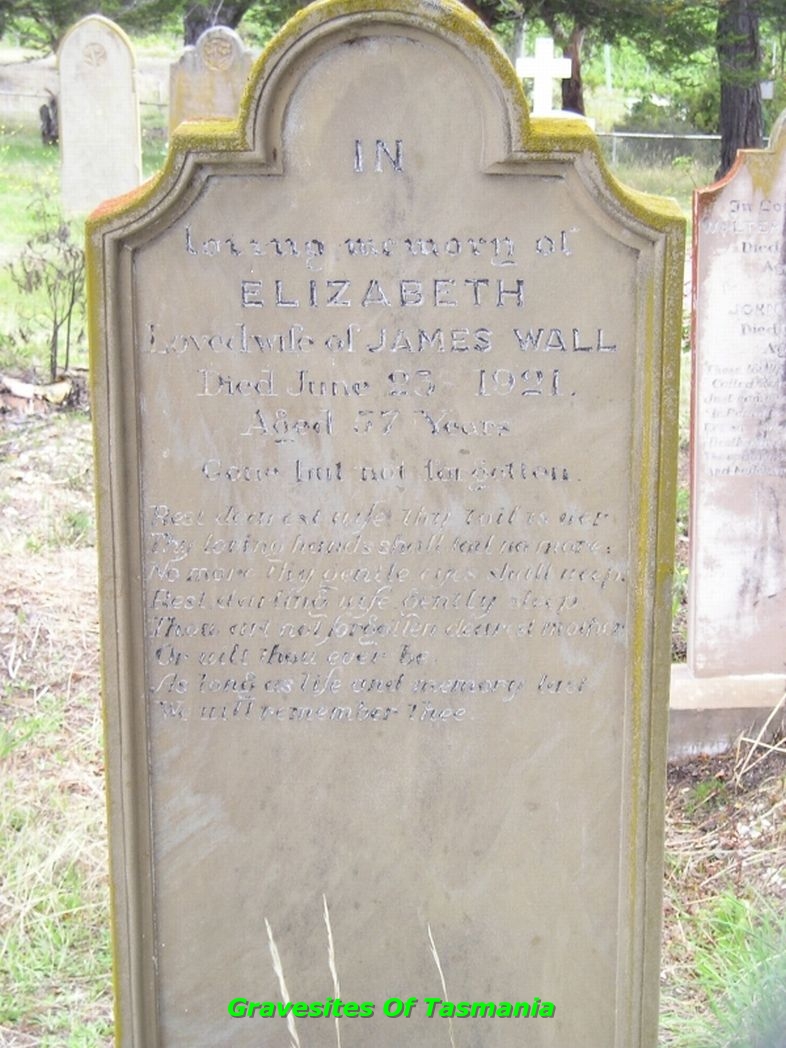 IN
loving memory of
ELIZABETH
Loved wife of JAMES WALL
Died June 23 1921.
Aged 57 Years
Gone but not forgotten.
Rest dearest wife thy toil is oer
Thy loving hands shall toil no more.
No more thy gentle eyes shall weep.
Rest darling wife gently sleep.
Thou art not forgotten dearest mother
Or wilt thou ever be.
As long as life and memory last
We will remember Thee.
In
Died
JOHN
Died
Called
Gravesites Of Tasmania